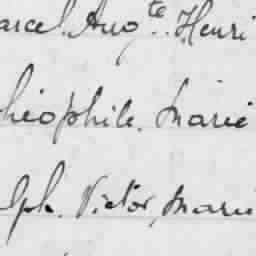 arcel. Aug^te. Henri
héophile. Marie
lph. Victor, Marie